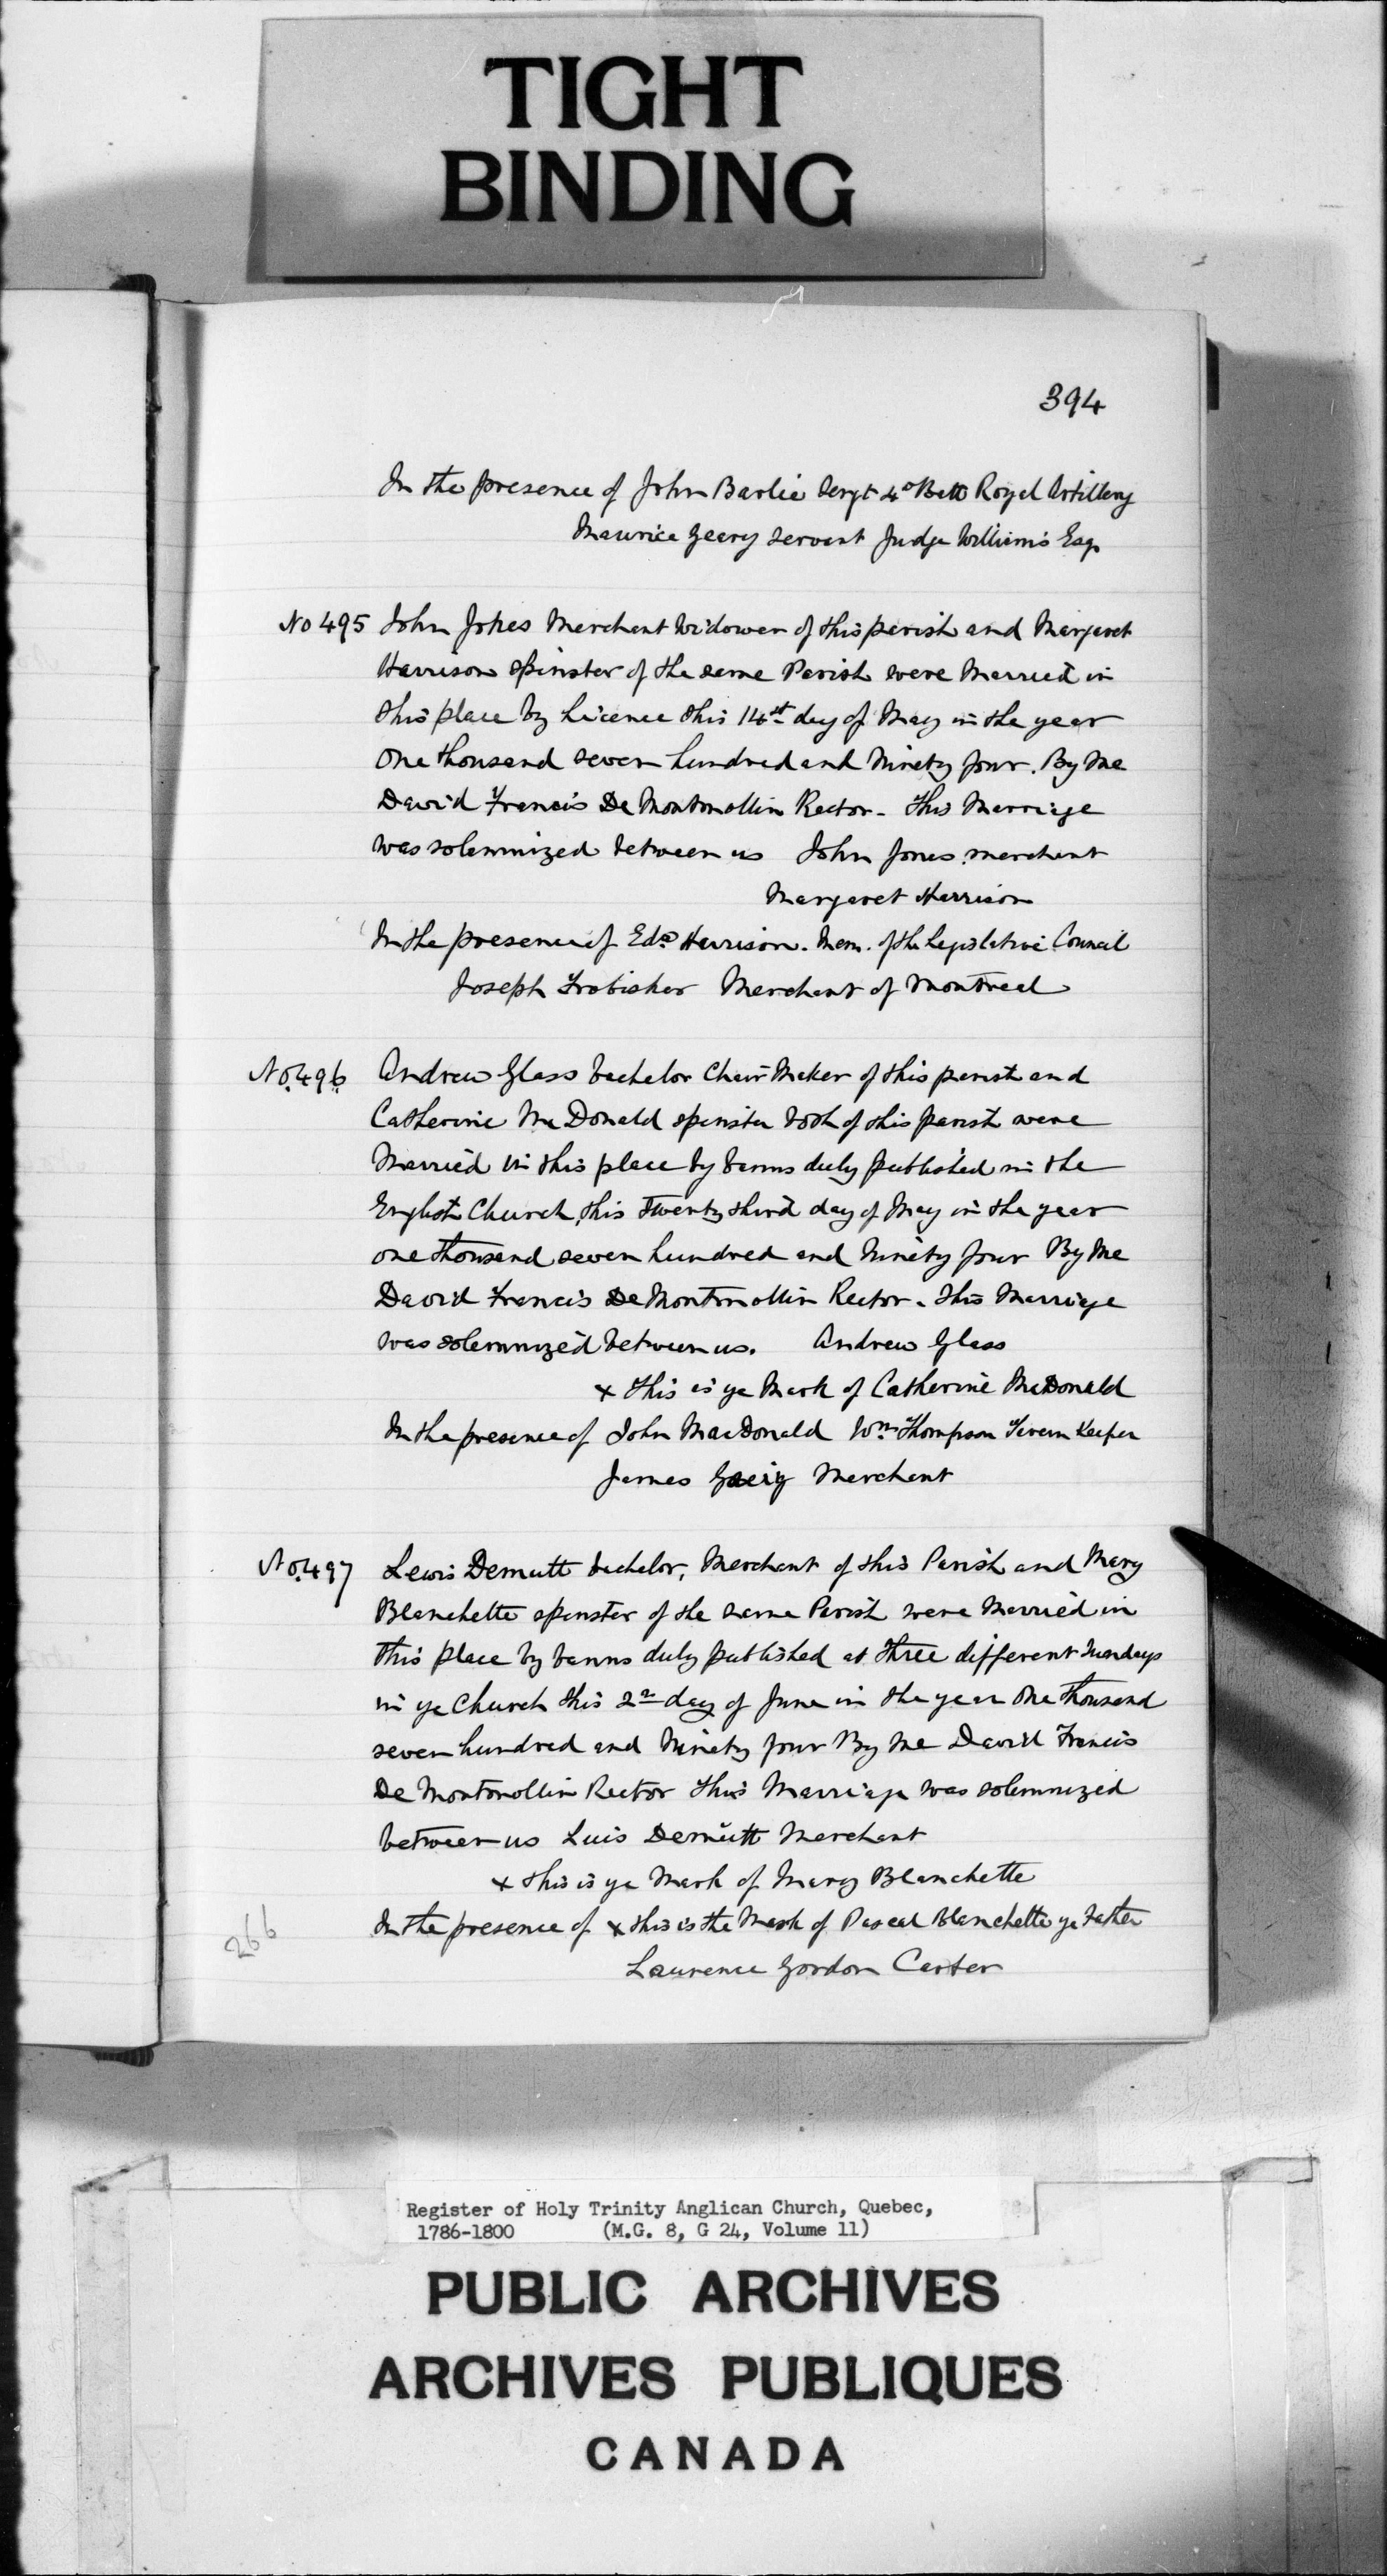 TIGHT
BINDING
394
In the presence of John Barlie Sergt 4º Batt Royal Artillery
Maurice Geary servant Judge Williams Esq.
No 495 John Jones Merchant Widower of this parish and Margaret
Harrison spinster of the same Parish were Married in
this place by Licence this 14st day of May in the year
One thousand seven hundred and Ninety four. By Me
David Francis De Montmollin Rector - This Marriage
was solemnized between us John Jones merchant
Margaret Harrison
In the presence of Edwd Harrison. Mem. of the Legislative Council
Joseph Frobisher Merchant of Montreal
No. 496 Andrew Glass bachelor Chair Maker of this parish and
Catherine McDonald spinster both of this parish were
Married in this place by banns duly published in the
English Church, this twenty third day of May in the year
one thousand seven hundred and Ninety four By Me
David Francis De Montmollin Rector. This Marriage
was solemnized between us. Andrew Glass
x This is ye Mark of Catherine McDonald
In the presence of John MacDonald Wm Thompson Tavern Keeper
James Greig Merchant
No. 497 Lewis Dermutt bachelor, Merchant of this Parish and Mary
Blanchette spinster of the same Parish were Married in
this place by banns duly published at three different Sundays
in ye Church this 2n day of June in the year One thousand
seven hundred and Ninety four By Me David Francis
De Montmollin Rector This Marriage was solemnized
between us Luis Dermutt Merchant
x this is ye Mark of Mary Blanchette
In the presence of x this is the Mark of Pascal Blanchette ye Father
Laurence Gordon Carter
266
Register of Holy Trinity Anglican Church, Quebec,
1786-1800 (M.G. 8, G 24, Volume 11)
PUBLIC ARCHIVES
ARCHIVES PUBLIQUES
CANADA